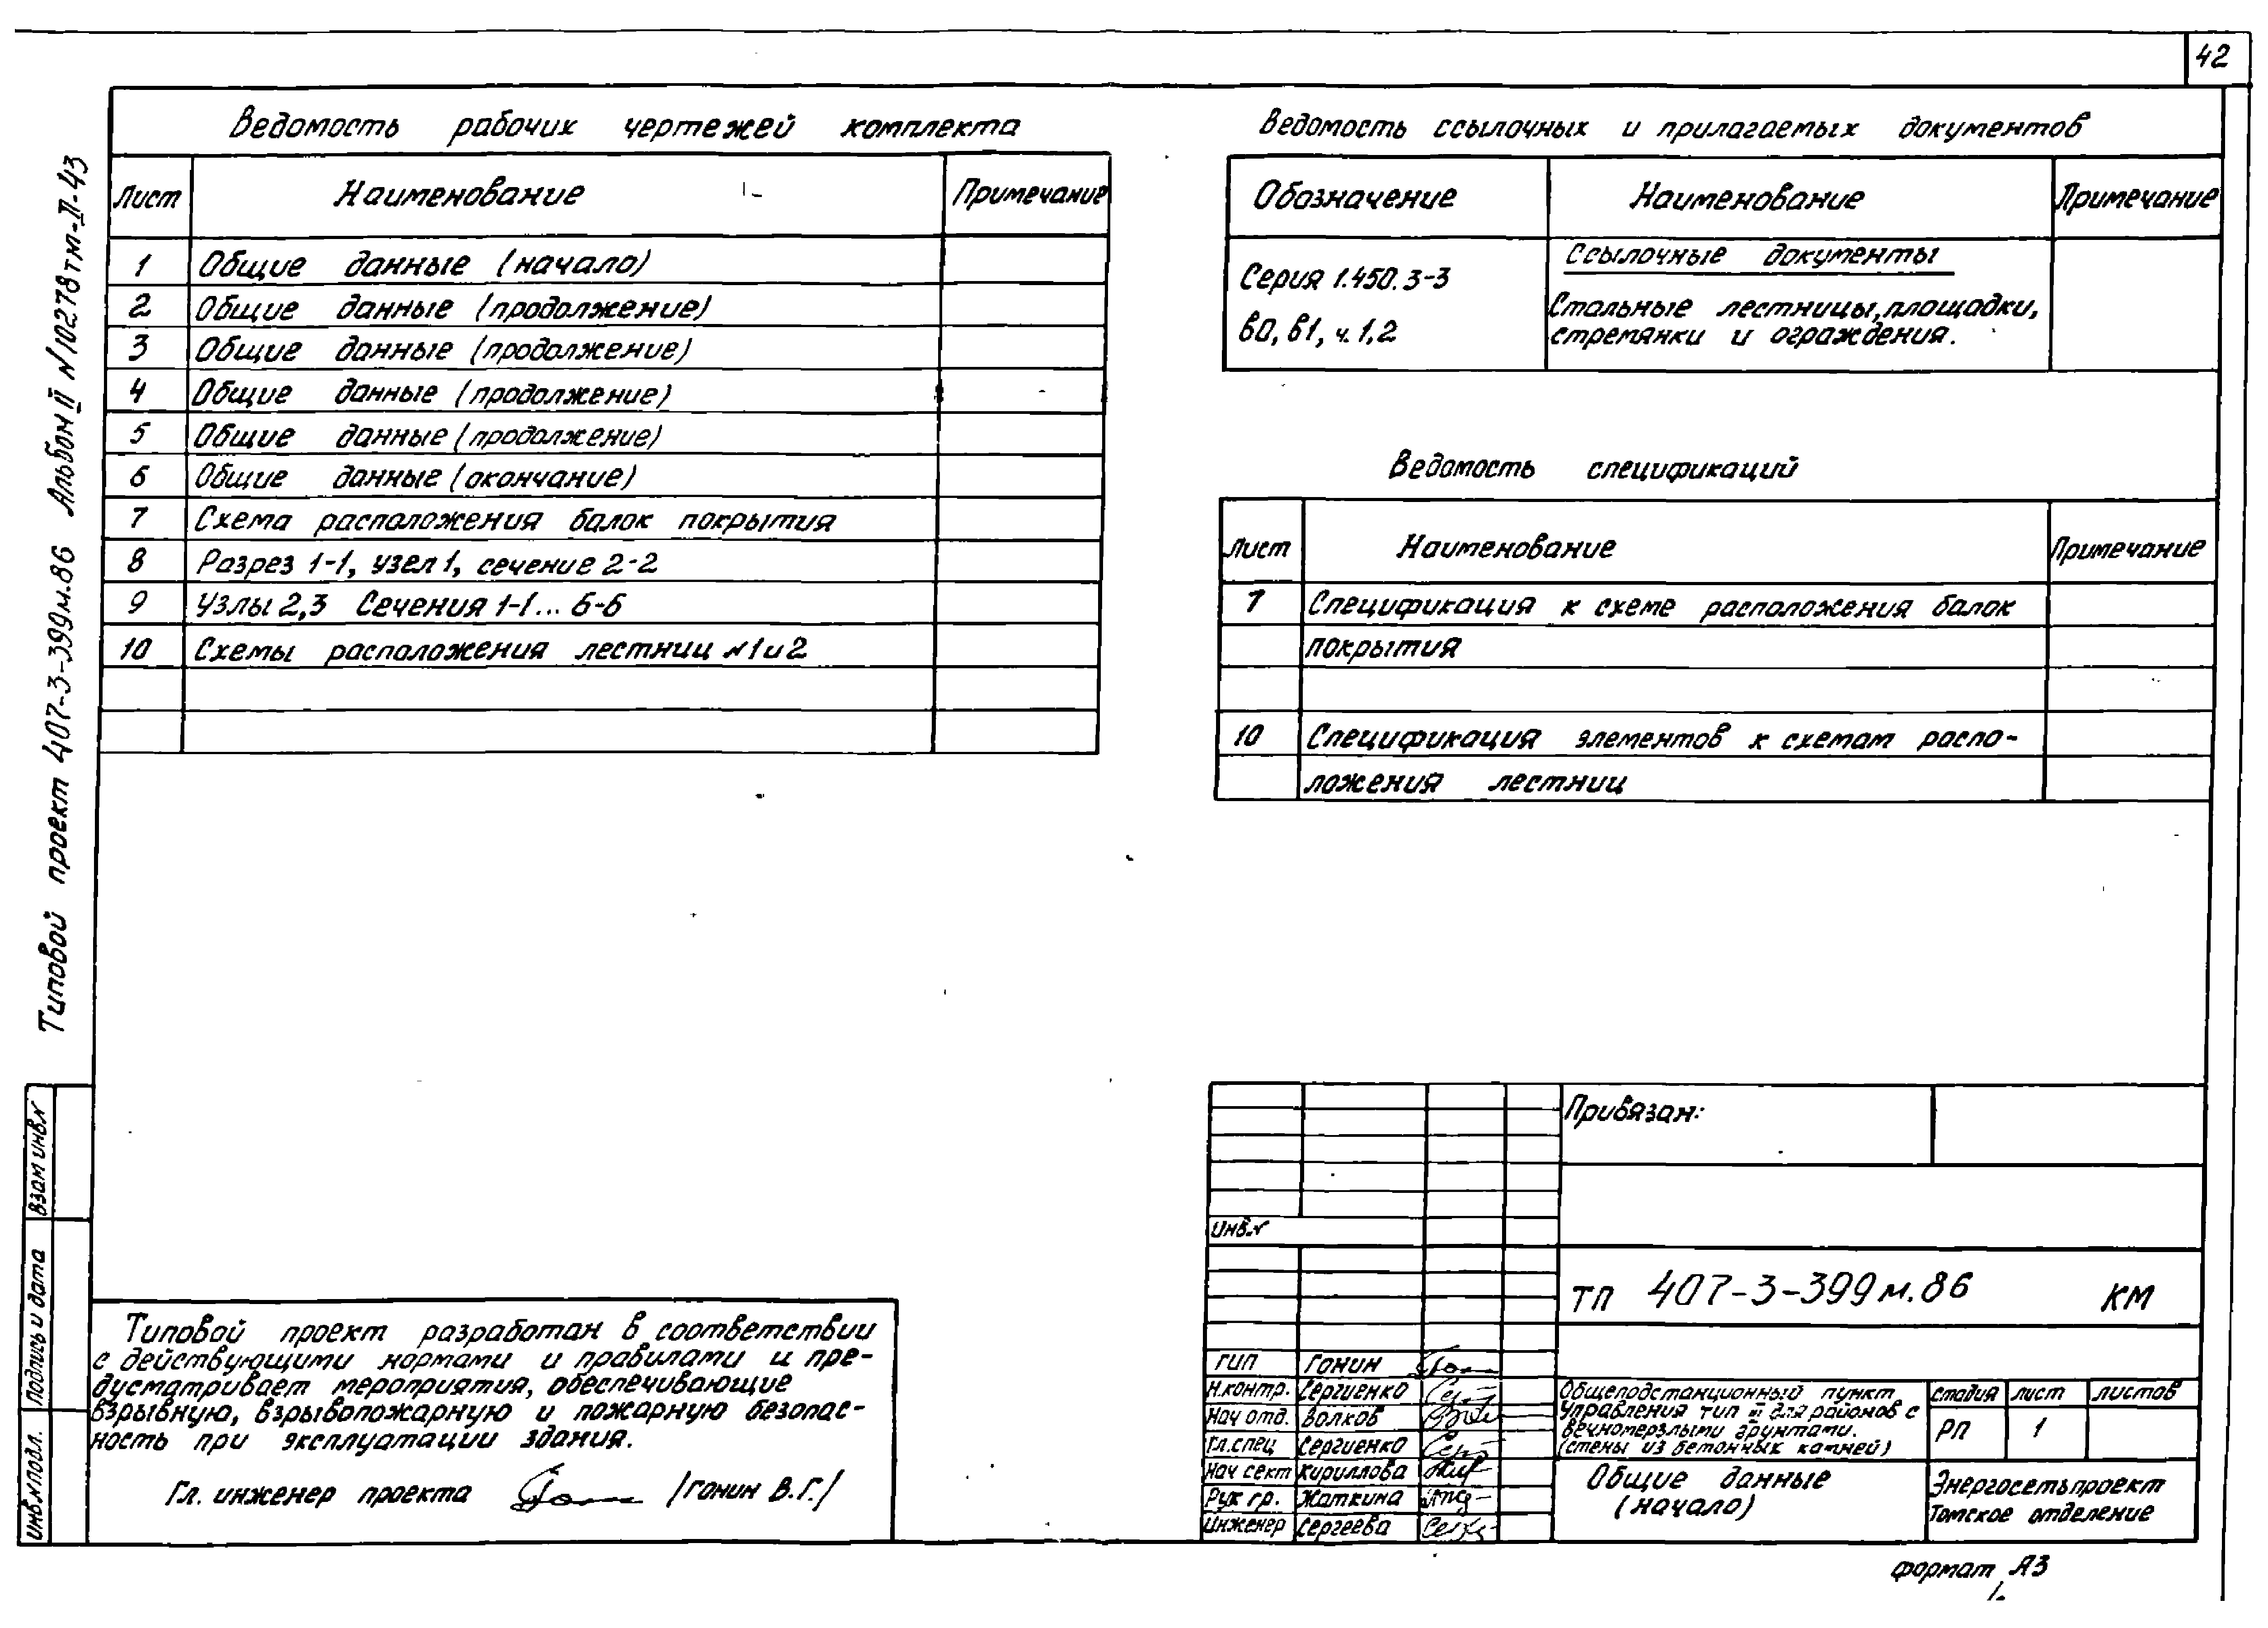 42
Ведомость рабочих чертежей комплекта
Лист Наименование Примечание
1 Общие данные (начало)
2 Общие данные (продолжение)
3 Общие данные (продолжение)
4 Общие данные (продолжение)
5 Общие данные (продолжение)
6 Общие данные (окончание)
7 Схема расположения балок покрытия
8 Разрез 1-1, узел 1, сечение 2-2
9 Узлы 2,3 Сечения 1-1... 6-6
10 Схемы расположения лестниц N1 и 2
Ведомость ссылочных и прилагаемых документов
Обозначение Наименование Примечание
Ссылочные документы
Серия 1.450.3-3
в0, в1, ч.1,2
Стальные лестницы, площадки,
стремянки и ограждения.
Ведомость спецификаций
Лист Наименование Примечание
7 Спецификация к схеме расположения балок
покрытия
10 Спецификация элементов к схемам распо-
ложения лестниц
Типовой проект 407-3-399м.86 Альбом II N10278тм-II-43
Взам инв.N
Подпись и дата
Инв.N подл.
Типовой проект разработан в соответствии
с действующими нормами и правилами и пре-
дусматривает мероприятия, обеспечивающие
взрывную, взрывопожарную и пожарную безопас-
ность при эксплуатации здания.
Гл. инженер проекта /Ганин В.Г./
Привязан:
Инв.N
ТП 407-3-399м.86 КМ
ГИП Ганин
Н.контр. Сергиенко
Нач отд. Волков
Гл.спец Сергиенко
Нач сект Кириллова
Рук гр. Жаткина
Инженер Сергеева
Общеподстанционный пункт
управления тип III для районов с
вечномерзлыми грунтами.
(стены из бетонных камней)
стадия лист листов
РП 1
Общие данные
(начало)
Энергосетьпроект
Томское отделение
формат А3